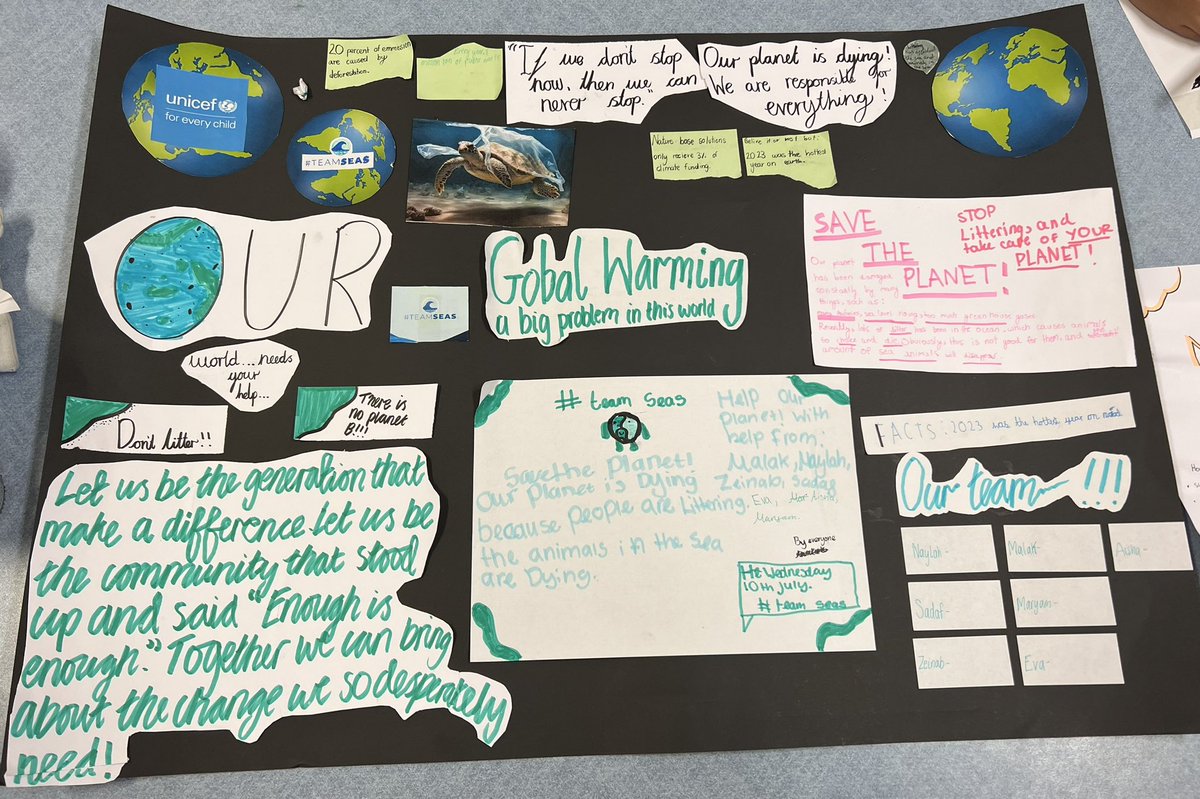 unicef
for every child
#TEAMSEAS
20 percent of emmission
are caused by
deforestation.
"If we don't stop
now, then we can
never stop."
Our planet is dying!
We are responsible for
everything!
Nature base solutions
only recieve 3% of
climate funding.
Belive it or not but:
2023 was the hottest
year on earth.
OUR
world... needs
your
help...
#TEAMSEAS
Gobal Warming
a big problem in this world
SAVE
THE
PLANET!
STOP
Littering, and
take care of YOUR
PLANET!
Our planet
has been damaged
constantly by many
things, such as:
sea level rising and more greenhouse gases
Recently, lots of litter has been in the ocean, which causes animals
to choke and die. Obviously, this is not good for them, and
amount of sea animals will disappear.
Don't litter!!
There is
no planet
B!!!
Let us be the generation that
make a difference let us be
the community that stood
up and said "Enough is
enough." Together we can bring
about the change we so desperately
need!
# team seas
Save the planet!
Our Planet is Dying
because people are Littering.
the animals in the sea
are Dying.
Help Our
Planet! With
help from:
Malak, Naylah,
Zeinab, Sadaf
Eva,
Maryam.
By everyone
Wednesday
10th July.
# team seas
FACTS: 2023 was the hottest year on
Our team !!!
Naylah-
Malak-
Aisha-
Sadaf-
Maryam-
Zeinab-
Eva-